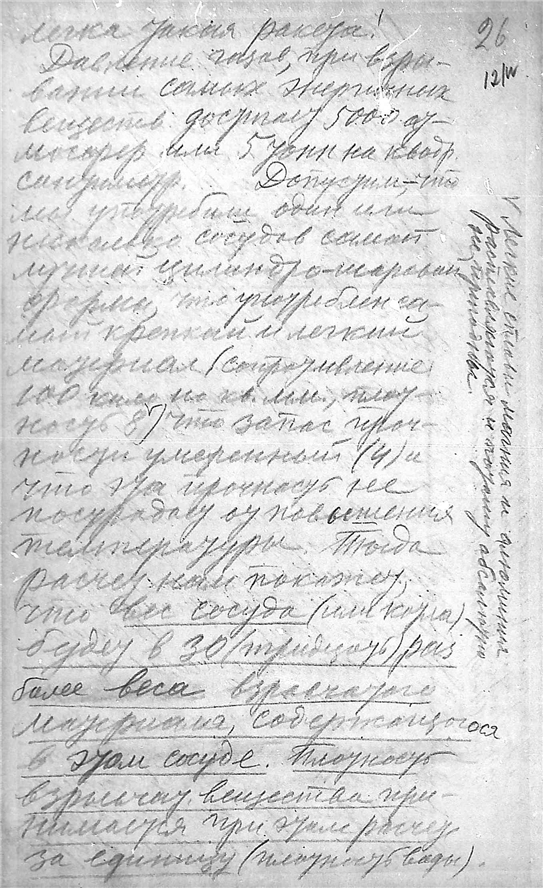 26
12/IV
легка такая ракета!
Давление газов, при взры-
вании самых энергичных
веществ достигает 5000 ат-
мосфер или 5 тонн на квадр.
сантиметр. Допустим, что
мы употребим один или
несколько сосудов самой
лучшей цилиндро-шаровой
формы, что употреблен са-
мый крепкий и легкий
материал (сопротивление
100 кило на кв. мм., плот-
ность 8), что запас проч-
ности умеренный (4) и
что эта прочность не
пострадает от повышения
температуры. Тогда
расчет нам покажет,
что вес сосуда (или корта)
будет в 30 (тридцать) раз
более веса взрывчатого
материала, содержащегося
в этом сосуде. Плотность
взрывчат. вещества при-
нимается при этом расчете
за единицу (плотность воды).
V Легкие сплавы магния и алюминия
расплавляются и потому абсолютно
не пригодны.